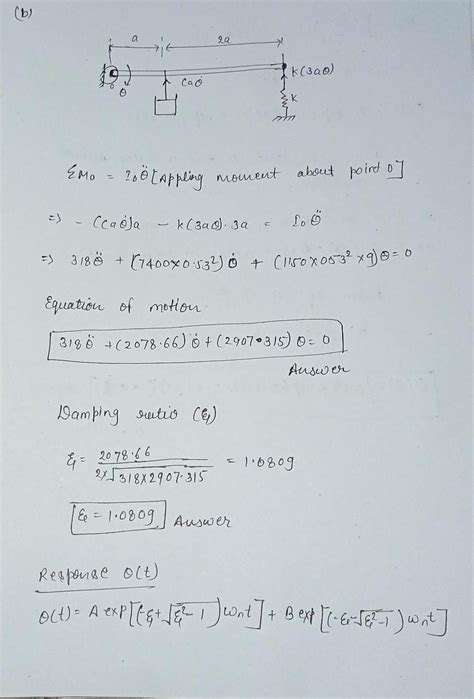 (b)
a 2a
k(3aθ)
θ caθ̇ k
ΣMo = Ioθ̈ [Appling moment about poird O]
=> - (caθ̇)a - k(3aθ)·3a = Io θ̈
=> 318θ̈ + (7400×0.53²) θ̇ + (1150×053²×9)θ = 0
Equation of motion.
318θ̈ + (2078.66) θ̇ + (2907.315) θ = 0
Answer
Damping ratio (ξ)
ξ = 2078.66 / 2×√318×2907.315 = 1.0809
ξ = 1.0809 Answer
Response θ(t)
θ(t) = A exp[(-ξ+√ξ²-1) ωnt] + B exp[(-ξ-√ξ²-1) ωnt]